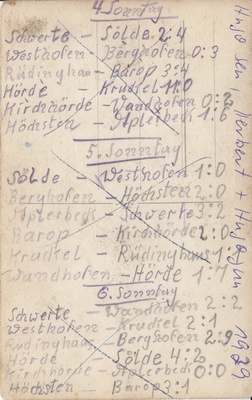 4. Sonntag
Schwerte - Sölde 2:4
Westhofen - Berghofen 0:3
Rüdinghau - Barop 3:4
Hörde - Kruckel 11:0
Kirchhörde - Wandhofen 0:2
Höchsten - Aplerbeck 1:6
5. Sonntag
Sölde - Westhofen 1:0
Berghofen - Höchsten 2:0
Aplerbeck - Schwerte 3:2
Barop - Kirchhörde 2:0
Kruckel - Rüdinghaus 1:
Wandhofen - Hörde 1:7
6. Sonntag
Schwerte - Wandhofen 2:2
Westhofen - Kruckel 2:1
Rüdinghaus - Berghofen 2:9
Hörde - Sölde 4:2
Kirchhörde - Aplerbeck 0:0
Höchsten - Barop 3:1
Hugo sen + 1929